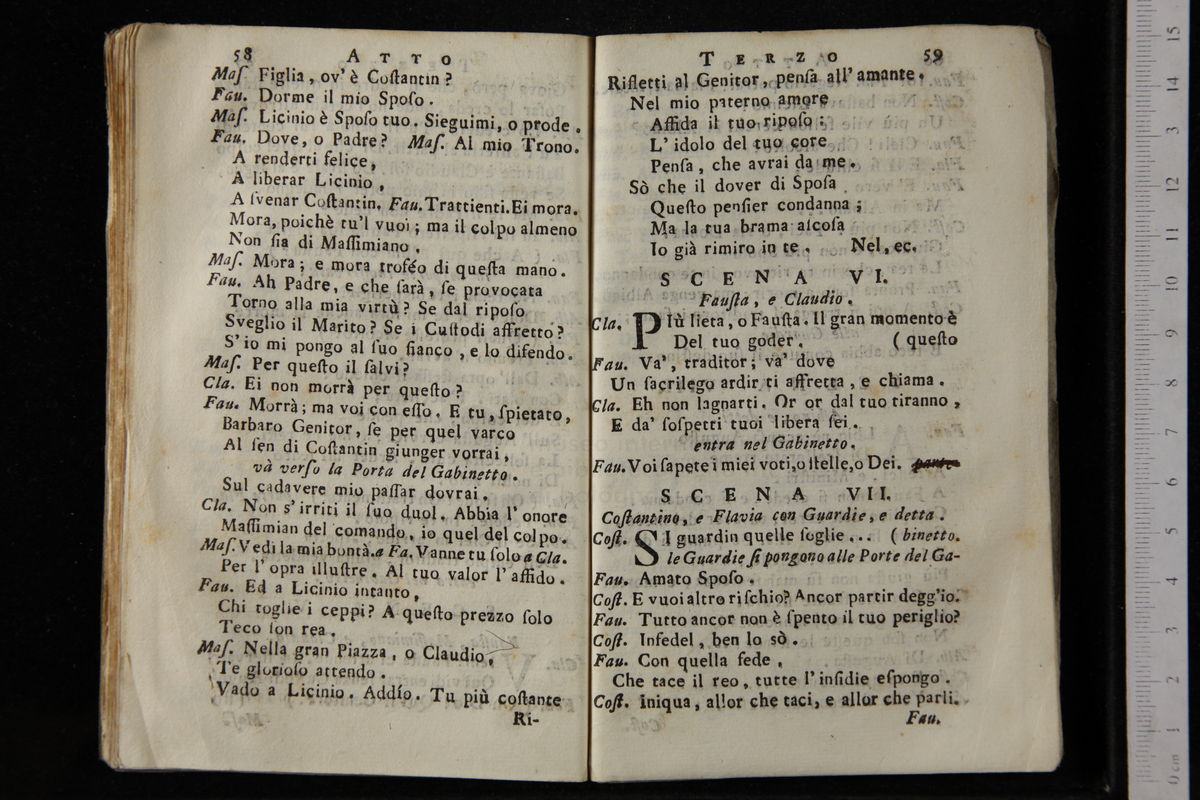 58 ATTO
Maſ. Figlia, ov' è Coſtantin?
Fau. Dorme il mio Spoſo.
Maſ. Licinio è Spoſo tuo. Sieguimi, o prode.
Fau. Dove, o Padre? Maſ. Al mio Trono.
A renderti felice,
A liberar Licinio,
A ſvenar Coſtantin. Fau. Trattienti. Ei mora.
Mora, poichè tu'l vuoi; ma il colpo almeno
Non ſia di Maſſimiano.
Maſ. Mora; e mora troféo di queſta mano.
Fau. Ah Padre, e che ſarà, ſe provocata
Torno alla mia virtù? Se dal ripoſo
Sveglio il Marito? Se i Cuſtodi affretto?
S' io mi pongo al ſuo fianco, e lo difendo.
Maſ. Per queſto il ſalvi?
Cla. Ei non morrà per queſto?
Fau. Morrà; ma voi con eſſo. E tu, ſpietato,
Barbaro Genitor, ſe per quel varco
Al ſen di Coſtantin giunger vorrai,
và verſo la Porta del Gabinetto.
Sul cadavere mio paſſar dovrai.
Cla. Non s' irriti il ſuo duol. Abbia l' onore
Maſſimian del comando, io quel del colpo.
Maſ. Vedi la mia bontà. a Fa. Vanne tu ſolo a Cla.
Per l' opra illuſtre. Al tuo valor l' affido.
Fau. Ed a Licinio intanto,
Chi toglie i ceppi? A queſto prezzo ſolo
Teco ſon rea.
Maſ. Nella gran Piazza, o Claudio,
Te glorioſo attendo.
Vado a Licinio. Addío. Tu più coſtante
Ri-
TERZO 59
Rifletti al Genitor, penſa all' amante.
Nel mio paterno amore
Affida il tuo ripoſo:
L' idolo del tuo core
Penſa, che avrai da me.
Sò che il dover di Spoſa
Queſto penſier condanna;
Ma la tua brama aſcoſa
Io già rimiro in te. Nel, ec.
SCENA VI.
Fauſta, e Claudio.
Cla. PIù lieta, o Fauſta. Il gran momento è
Del tuo goder. ( queſto
Fau. Va', traditor; va' dove
Un ſacrilego ardir ti affretta, e chiama.
Cla. Eh non lagnarti. Or or dal tuo tiranno,
E da' ſoſpetti tuoi libera ſei.
entra nel Gabinetto.
Fau. Voi ſapete i miei voti, o ſtelle, o Dei. parte
SCENA VII.
Coſtantino, e Flavia con Guardie, e detta.
Coſt. SI guardin quelle ſoglie... ( binetto.
le Guardie ſi pongono alle Porte del Ga-
Fau. Amato Spoſo.
Coſt. E vuoi altro riſchio? Ancor partir degg'io.
Fau. Tutto ancor non è ſpento il tuo periglio?
Coſt. Infedel, ben lo sò.
Fau. Con quella fede,
Che tace il reo, tutte l' inſidie eſpongo.
Coſt. Iniqua, allor che taci, e allor che parli.
Fau.